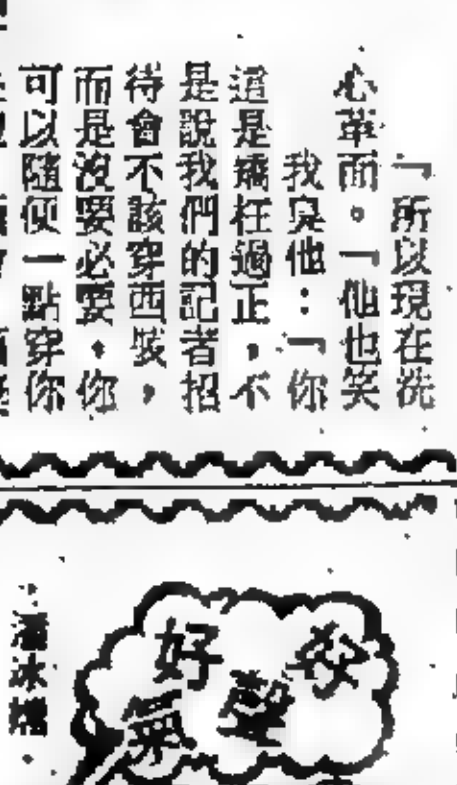 「所以現在洗
心革面。「他也笑
我臭他：「你
這是矯枉過正，不
是說我們的記者招
待會不該穿西裝，
而是沒要必要，你
可以隨便一點穿你
好
氣